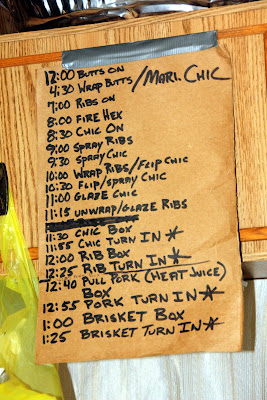 12:00 BUTTS ON
4:30 WRAP BUTTS/MARI. CHIC
7:00 RIBS ON
8:00 FIRE HEX
8:30 CHIC ON
9:00 SPRAY RIBS
9:30 SPRAY CHIC
10:00 WRAP RIBS/FLIP CHIC
10:30 FLIP/SPRAY CHIC
11:00 GLAZE CHIC
11:15 UNWRAP/GLAZE RIBS
11:30 CHIC BOX
11:55 CHIC TURN IN*
12:00 RIB BOX
12:25 RIB TURN IN*
12:40 PULL PORK (HEAT JUICE)
BOX
12:55 PORK TURN IN*
1:00 BRISKET BOX
1:25 BRISKET TURN IN*